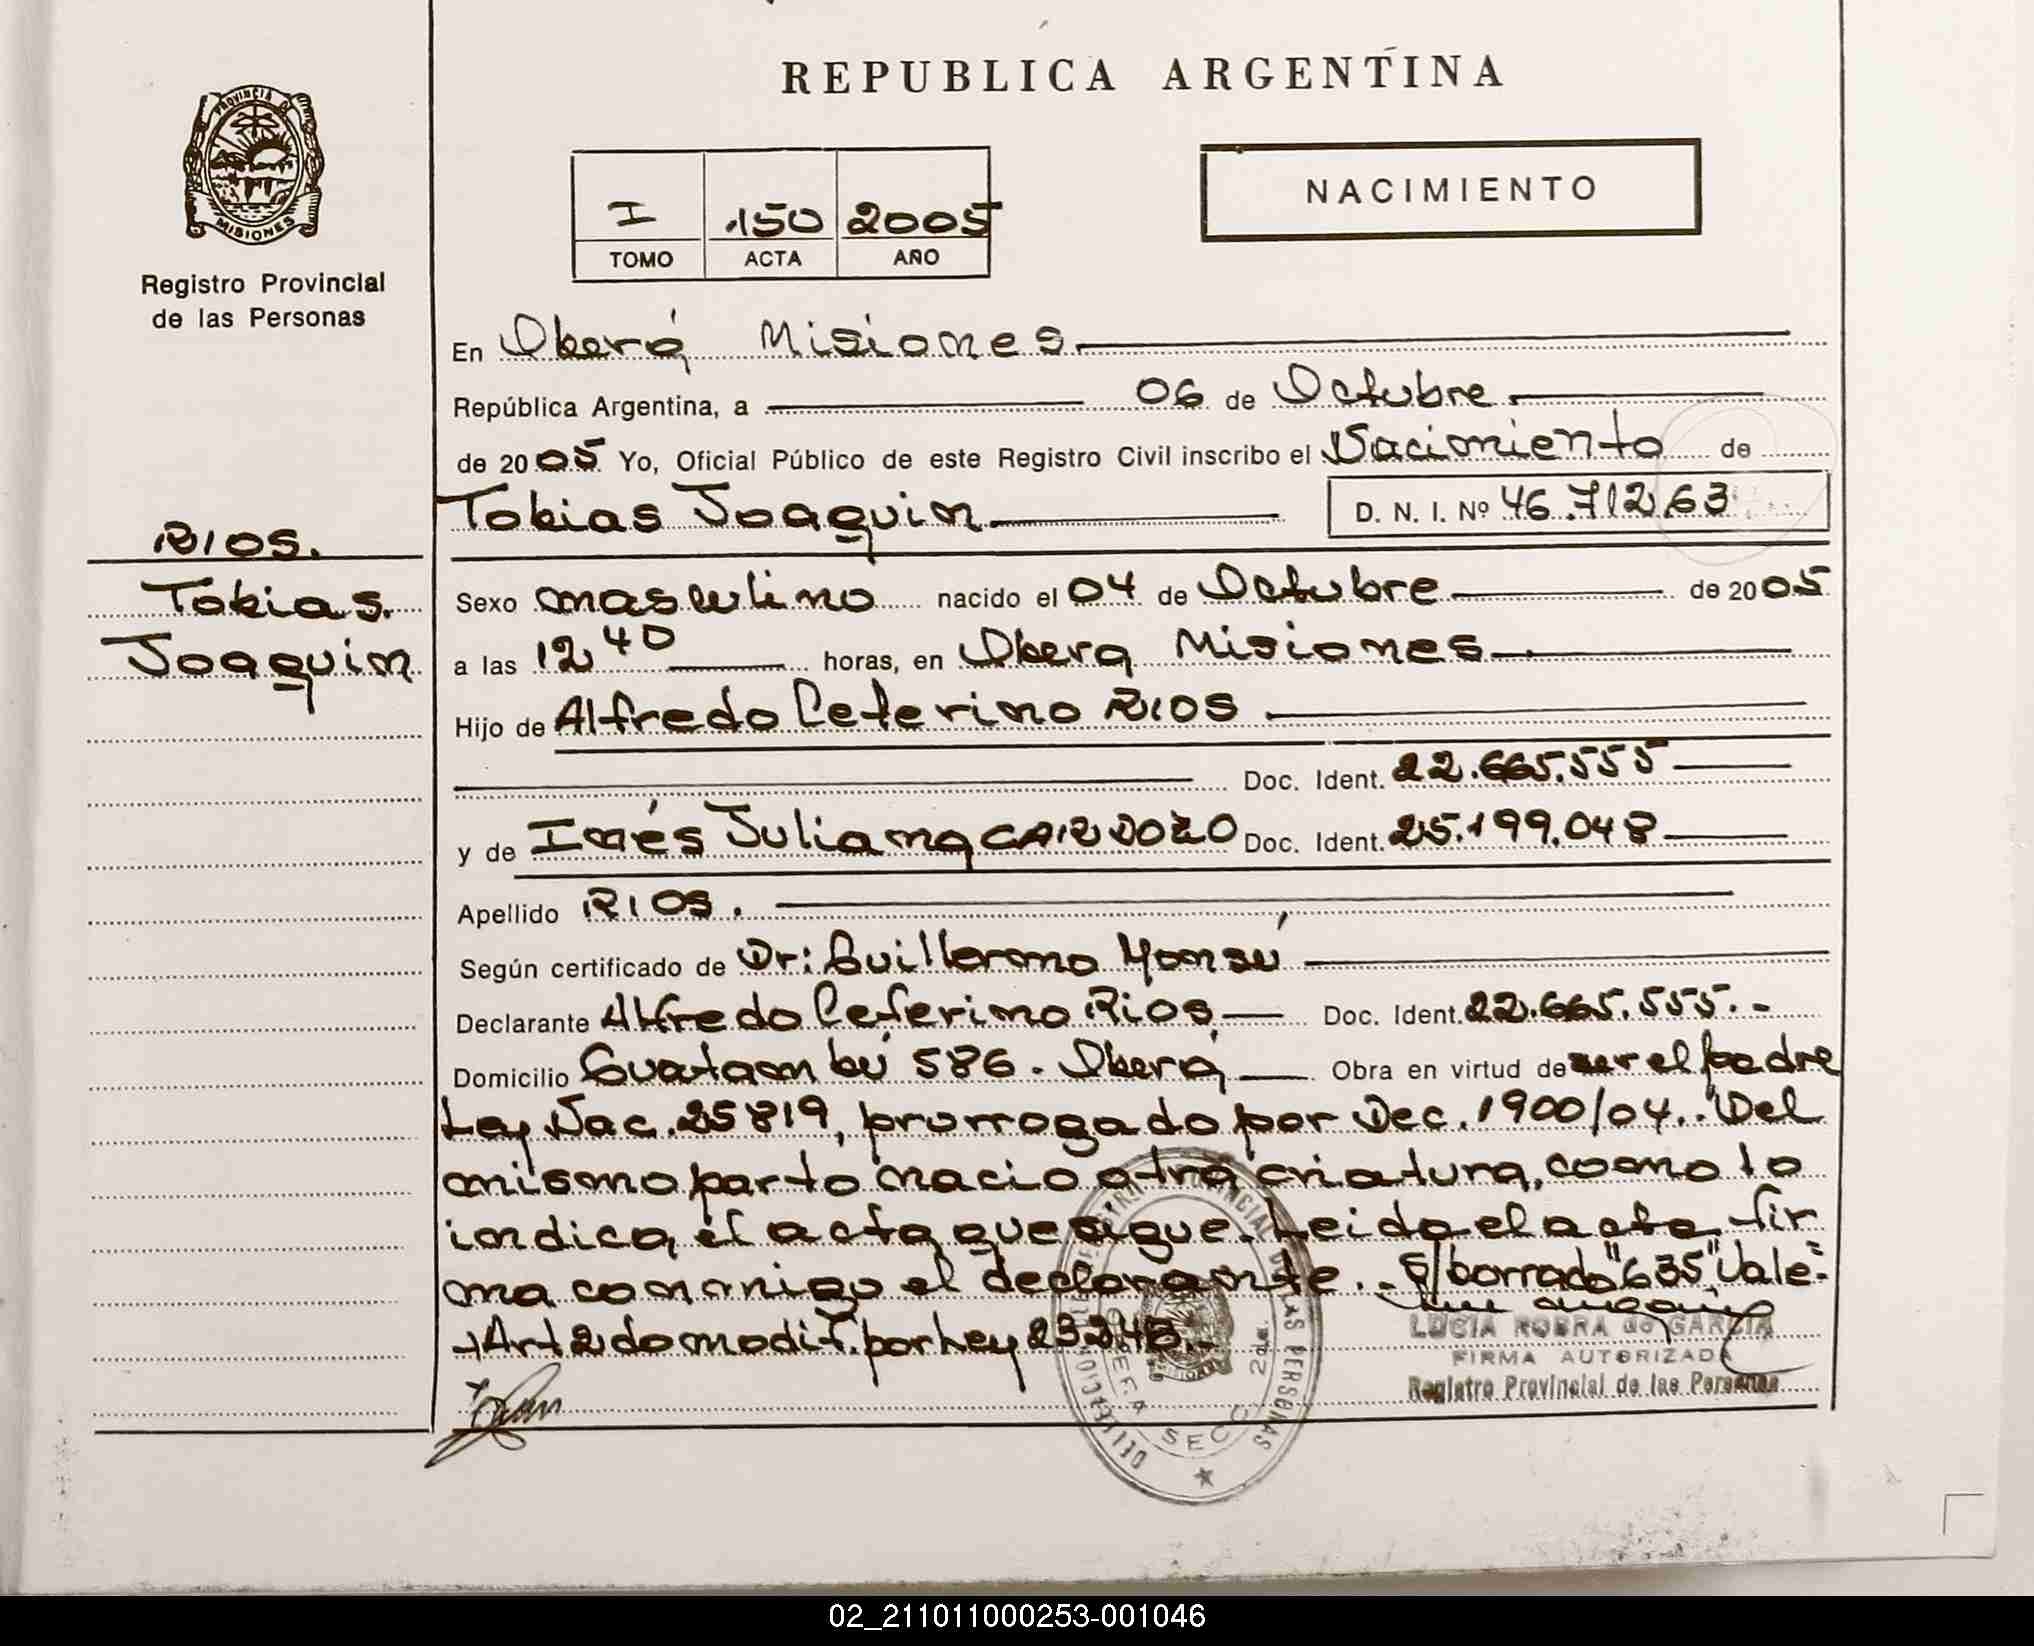 REPUBLICA ARGENTINA
PROVINCIA DE
MISIONES
Registro Provincial
de las Personas
I 150 2005
TOMO ACTA AÑO
NACIMIENTO
En Oberá Misiones
República Argentina, a 06 de Octubre
de 2005 Yo, Oficial Público de este Registro Civil inscribo el Nacimiento de
Tobias Joaquin D. N. I. Nº 46.712.63
RIOS.
Tobias
Joaquin
Sexo masculino nacido el 04 de Octubre de 2005
a las 12 40 horas, en Oberá Misiones
Hijo de Alfredo Ceferino RIOS
Doc. Ident. 22.665.555
y de Inés Juliana CARDOZO Doc. Ident. 25.199.048
Apellido RIOS.
Según certificado de Dr: Guillermo
Declarante Alfredo Ceferino Rios Doc. Ident. 22.665.555.-
Domicilio Guatambú 586. Oberá Obra en virtud de ser el padre
Ley Nac. 25819, prorrogado por Dec. 1900/04. Del
mismo parto nacio otra criatura, como lo
indica el acta que sigue. Leida el acta fir
ma conmigo el declarante.. S/borrado "635" Vale.-
+Art 2do modif. por Ley
LUCIA ROBRA de GARCIA
FIRMA AUTORIZADA
Registro Provincial de las Personas
02_211011000253-001046